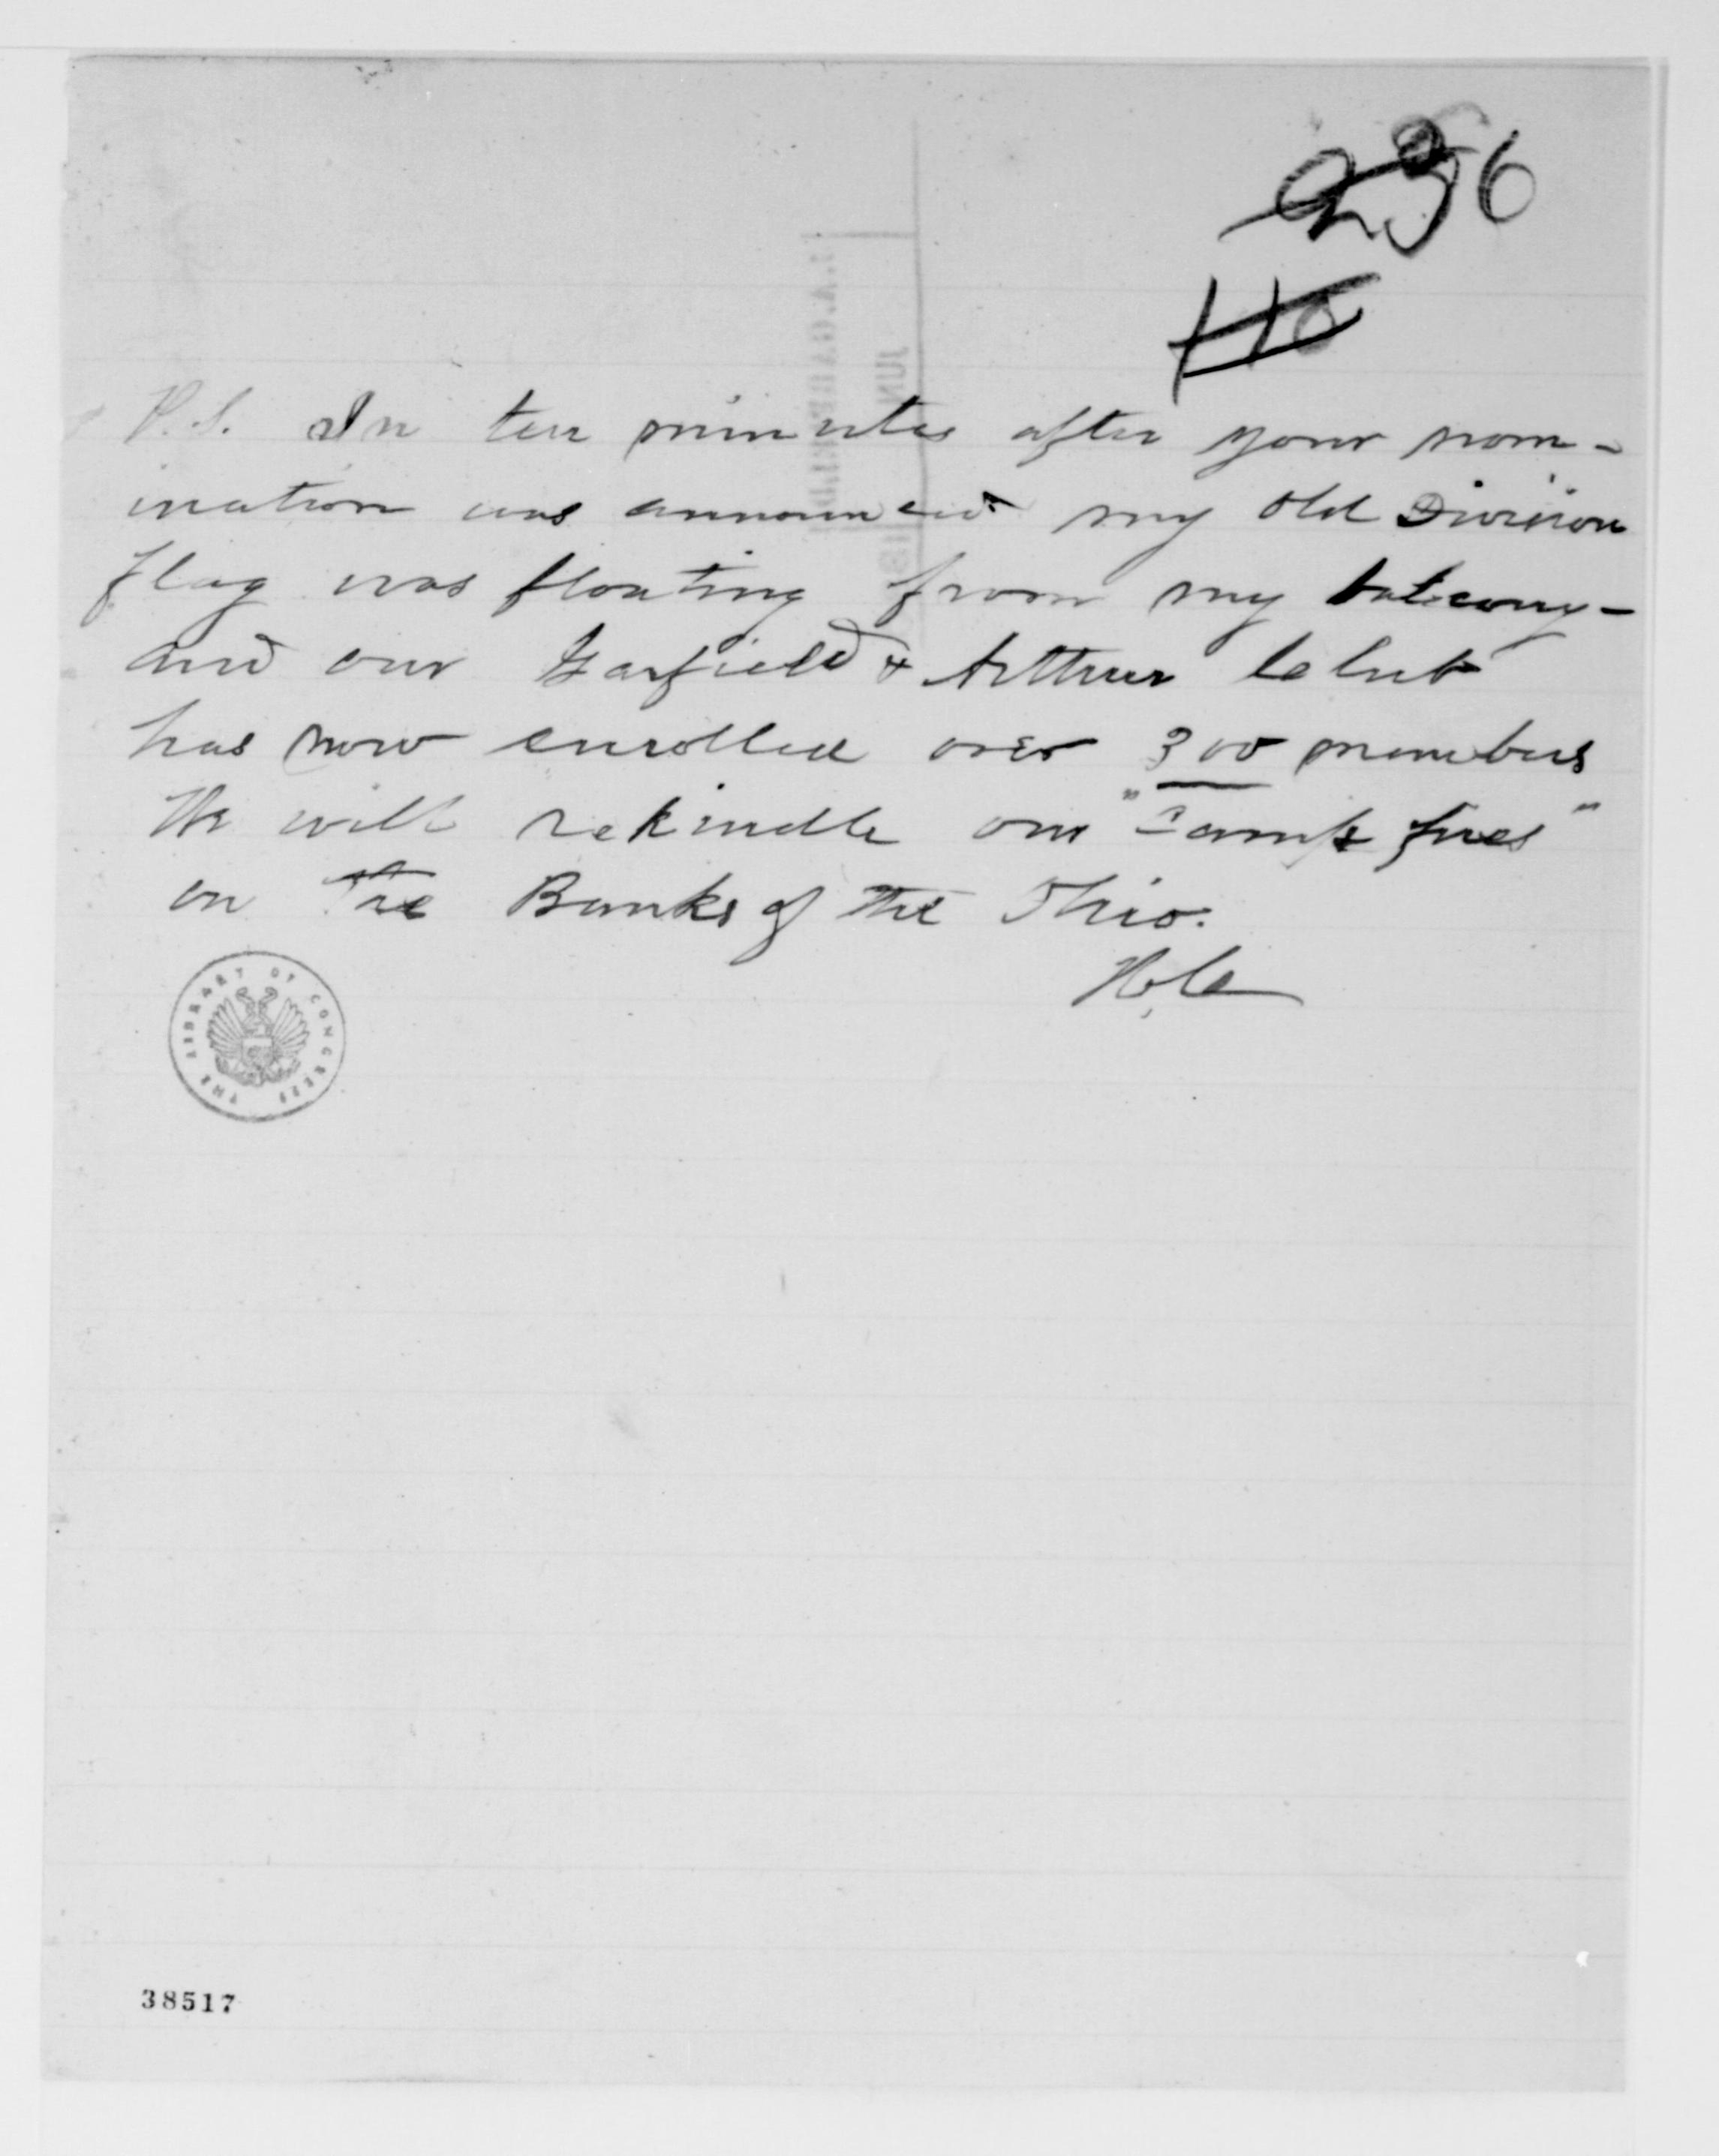 236
110
P.S. In ten minutes after your nom-
ination was announced my old Division
flag was floating from my balcony-
and our Garfield & Arthur Club
has now enrolled over 300 members
We will rekindle our "Camp fires"
on the Banks of the Ohio.
THE LIBRARY OF CONGRESS
38517